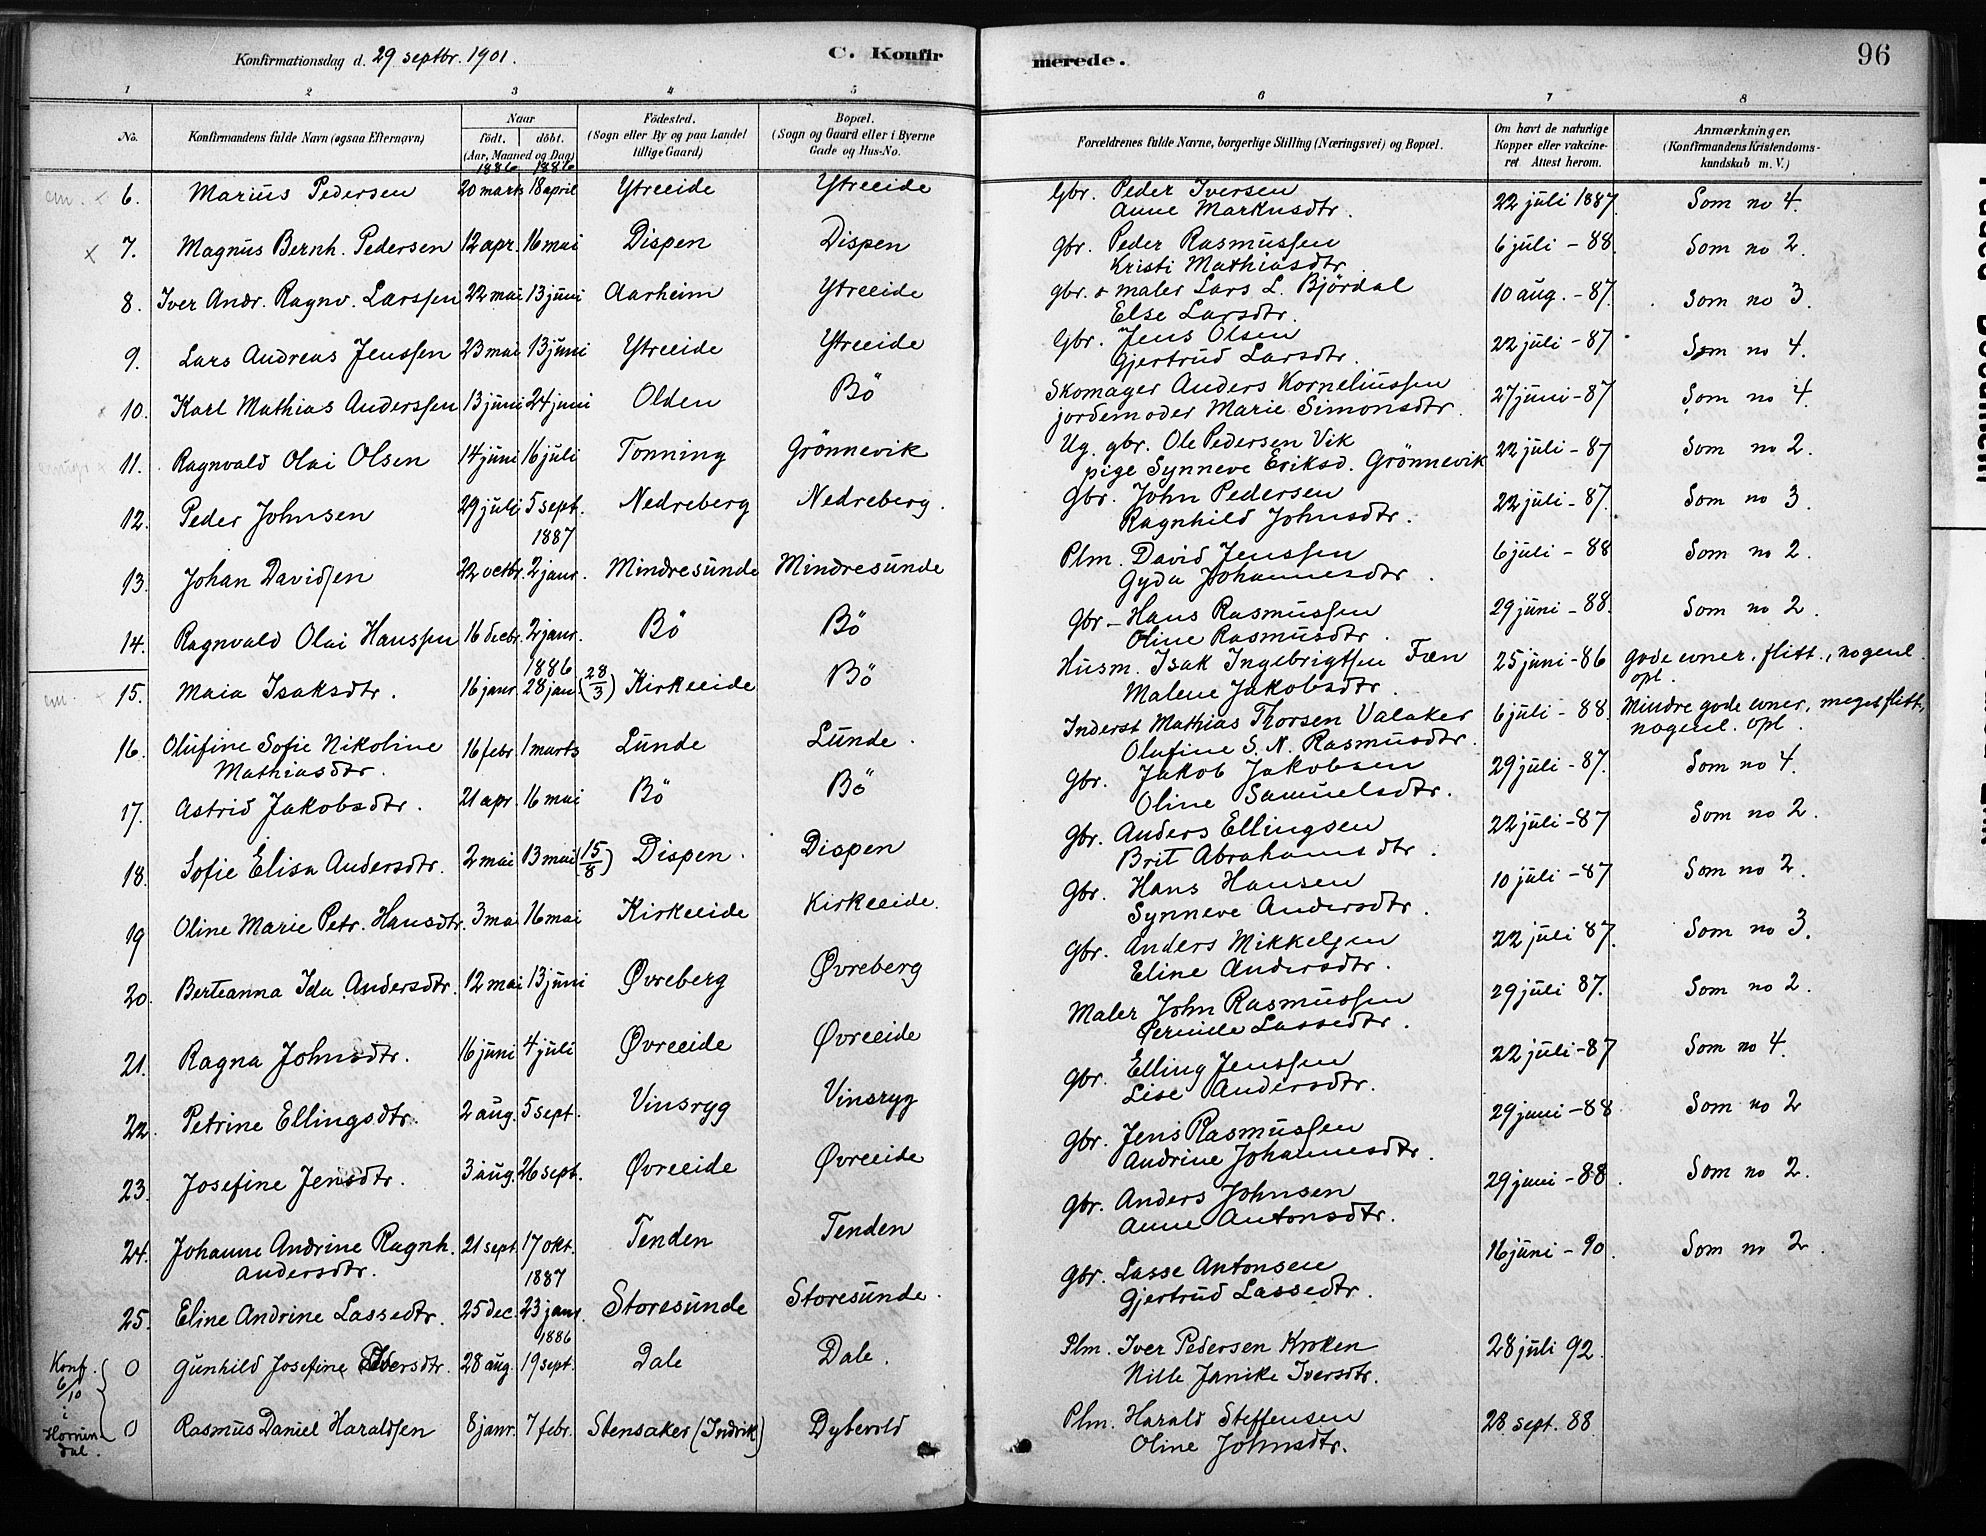 Konfirmationsdag d. 29. septbr. 1901. C. Konfirmerede. 96
1 2 3 4 5 6 7 8
No. Konfirmandens fulde Navn (ogsaa Efternavn) Naar födt. döbt. (Aar, Maaned og Dag) Födested. (Sogn eller By og paa Landet tillige Gaard) Bopæl. (Sogn og Gaard eller i Byerne Gade og Hus-No. Forældrenes fulde Navne, borgerlige Stilling (Næringsvei) og Bopæl. Om havt de naturlige Kopper eller vakcineret. Attest herom. Anmærkninger. (Konfirmandens Kristendomskundskab m. V.)
1886 1886
em. x 6. Marius Pedersen 20 marts 18 april Ytreeide Ytreeide Gbr. Peder Iversen 22 juli 1887. Som no 4.
Anne Markusdtr.
x 7. Magnus Bernh. Pedersen 12 apr. 16 mai Dispen Dispen Gbr. Peder Rasmussen 6 juli - 88. Som no 2.
Kristi Mathiasdtr.
8. Iver Andr. Ragnv. Larssen 22 mai 13 juni Aarheim Ytreeide gbr. & maler Lars L. Björdal 10 aug. - 87. Som no 3.
Else Larsdtr.
9. Lars Andreas Jenssen 23 mai 13 juni Ytreeide Ytreeide Gbr. Jens Olsen 22 juli - 87. Som no 4.
Gjertrud Larsdtr.
x 10. Karl Mathias Anderssen 13 juni 24 juni Olden Bö Skomager Anders Korneliussen 27 juni - 87 Som no 4.
jordemoder Marie Simonsdtr.
emigr x 11. Ragnvald Olai Olsen 14 juni 16 juli Tonning Grönnevik Ug. gbr. Ole Pedersen Vik 22 juli - 87 Som no 2.
pige Synneve Eriksd. Grönnevik
12. Peder Johnsen 29 juli 5 sept. Nedreberg Nedreberg. Gbr. John Pedersen 22 juli - 87. Som no 3
Ragnhild Johnsdtr.
1887
13. Johan Davidsen 22 octbr. 2 janr. Mindresunde Mindresunde Plm. David Jenssen 6 juli - 88 Som no 2.
Gyda Johannesdtr.
14. Ragnvald Olai Hanssen 16 decbr. 2 janr. Bö Bö Gbr - Hans Rasmussen 29 juni - 88. Som no 2.
Oline Rasmusdtr.
1886
em. x 15. Maia Isaksdtr. 16 janr. 28 jan (28/3) Kirkeeide Bö Husm. Isak Ingebrigtsen Fæn 25 juni - 86 gode evner. flitt., nogenl.
Malene Jakobsdtr. opl.
16. Olufine Sofie Nikoline 16 febr. 1 marts Lunde Lunde. Inderst Mathias Thorsen Valaker 6 juli - 88. Mindre gode evner, meget flitt,
Mathiasdtr. Olufine S. N. Rasmusdtr. nogenl. opl.
17. Astrid Jakobsdtr. 21 apr. 16 mai Bö Bö Gbr. Jakob Jakobsen 29 juli - 87. Som no 4.
Oline Samuelsdtr.
18. Sofie Elisa Andersdtr. 2 mai 13 mai (15/8) Dispen. Dispen Gbr. Anders Ellingsen 22 juli - 87 Som no 2.
Brit Abrahamsdtr.
19 Oline Marie Petr. Hansdtr. 3 mai 16 mai Kirkeeide Kirkeeide. Gbr. Hans Hansen 10 juli - 87 Som no 2.
Synneve Andersdtr.
20. Berteanna Ida Andersdtr. 12 mai 13 juni Øvreberg Øvreberg Gbr. Anders Mikkelsen 22 juli 87. Som no 3.
Eline Andersdtr.
21. Ragna Johnsdtr. 16 juni 4 juli Øvreeide Øvreeide Maler John Rasmussen 29 juli 87. Som no 2.
Pernille Lassedtr.
22. Petrine Ellingsdtr. 2 aug. 5 sept. Vinsryg Vinsryg Gbr. Elling Jenssen 22 juli - 87 Som no 4.
Lise Andersdtr.
23. Josefine Jensdtr. 3 aug. 26 sept. Øvreeide Øvreeide Gbr. Jens Rasmussen 29 juni - 88 Som no 2
Andrine Johannesdtr.
24. Johanne Andrine Ragnh. 21 sept. 17 okt. Tenden Tenden Gbr. Anders Johnsen 29 juni - 88. Som no 2.
Andersdtr. Anne Antonsdtr.
1887
25. Eline Andrine Lassedtr. 25 dec. 23 janr. Storesunde Storesunde. Gbr. Lasse Antonsen 16 juni - 90. Som no 2.
Gjertrud Lassedtr.
1886
Konf. 6/10 i Hornindal. 0 Gunhild Josefine Iversdtr. 28 aug. 19 sept. Dale Dale. Plm. Iver Pedersen Kroken 28 juli 92.
Nille Janike Iversdtr.
0 Rasmus Daniel Haraldsen 8 janr. 7 febr. Stensaker (Indvik) Dybevold Plm. Harald Steffensen 28. sept. 88.
Oline Johnsdtr.